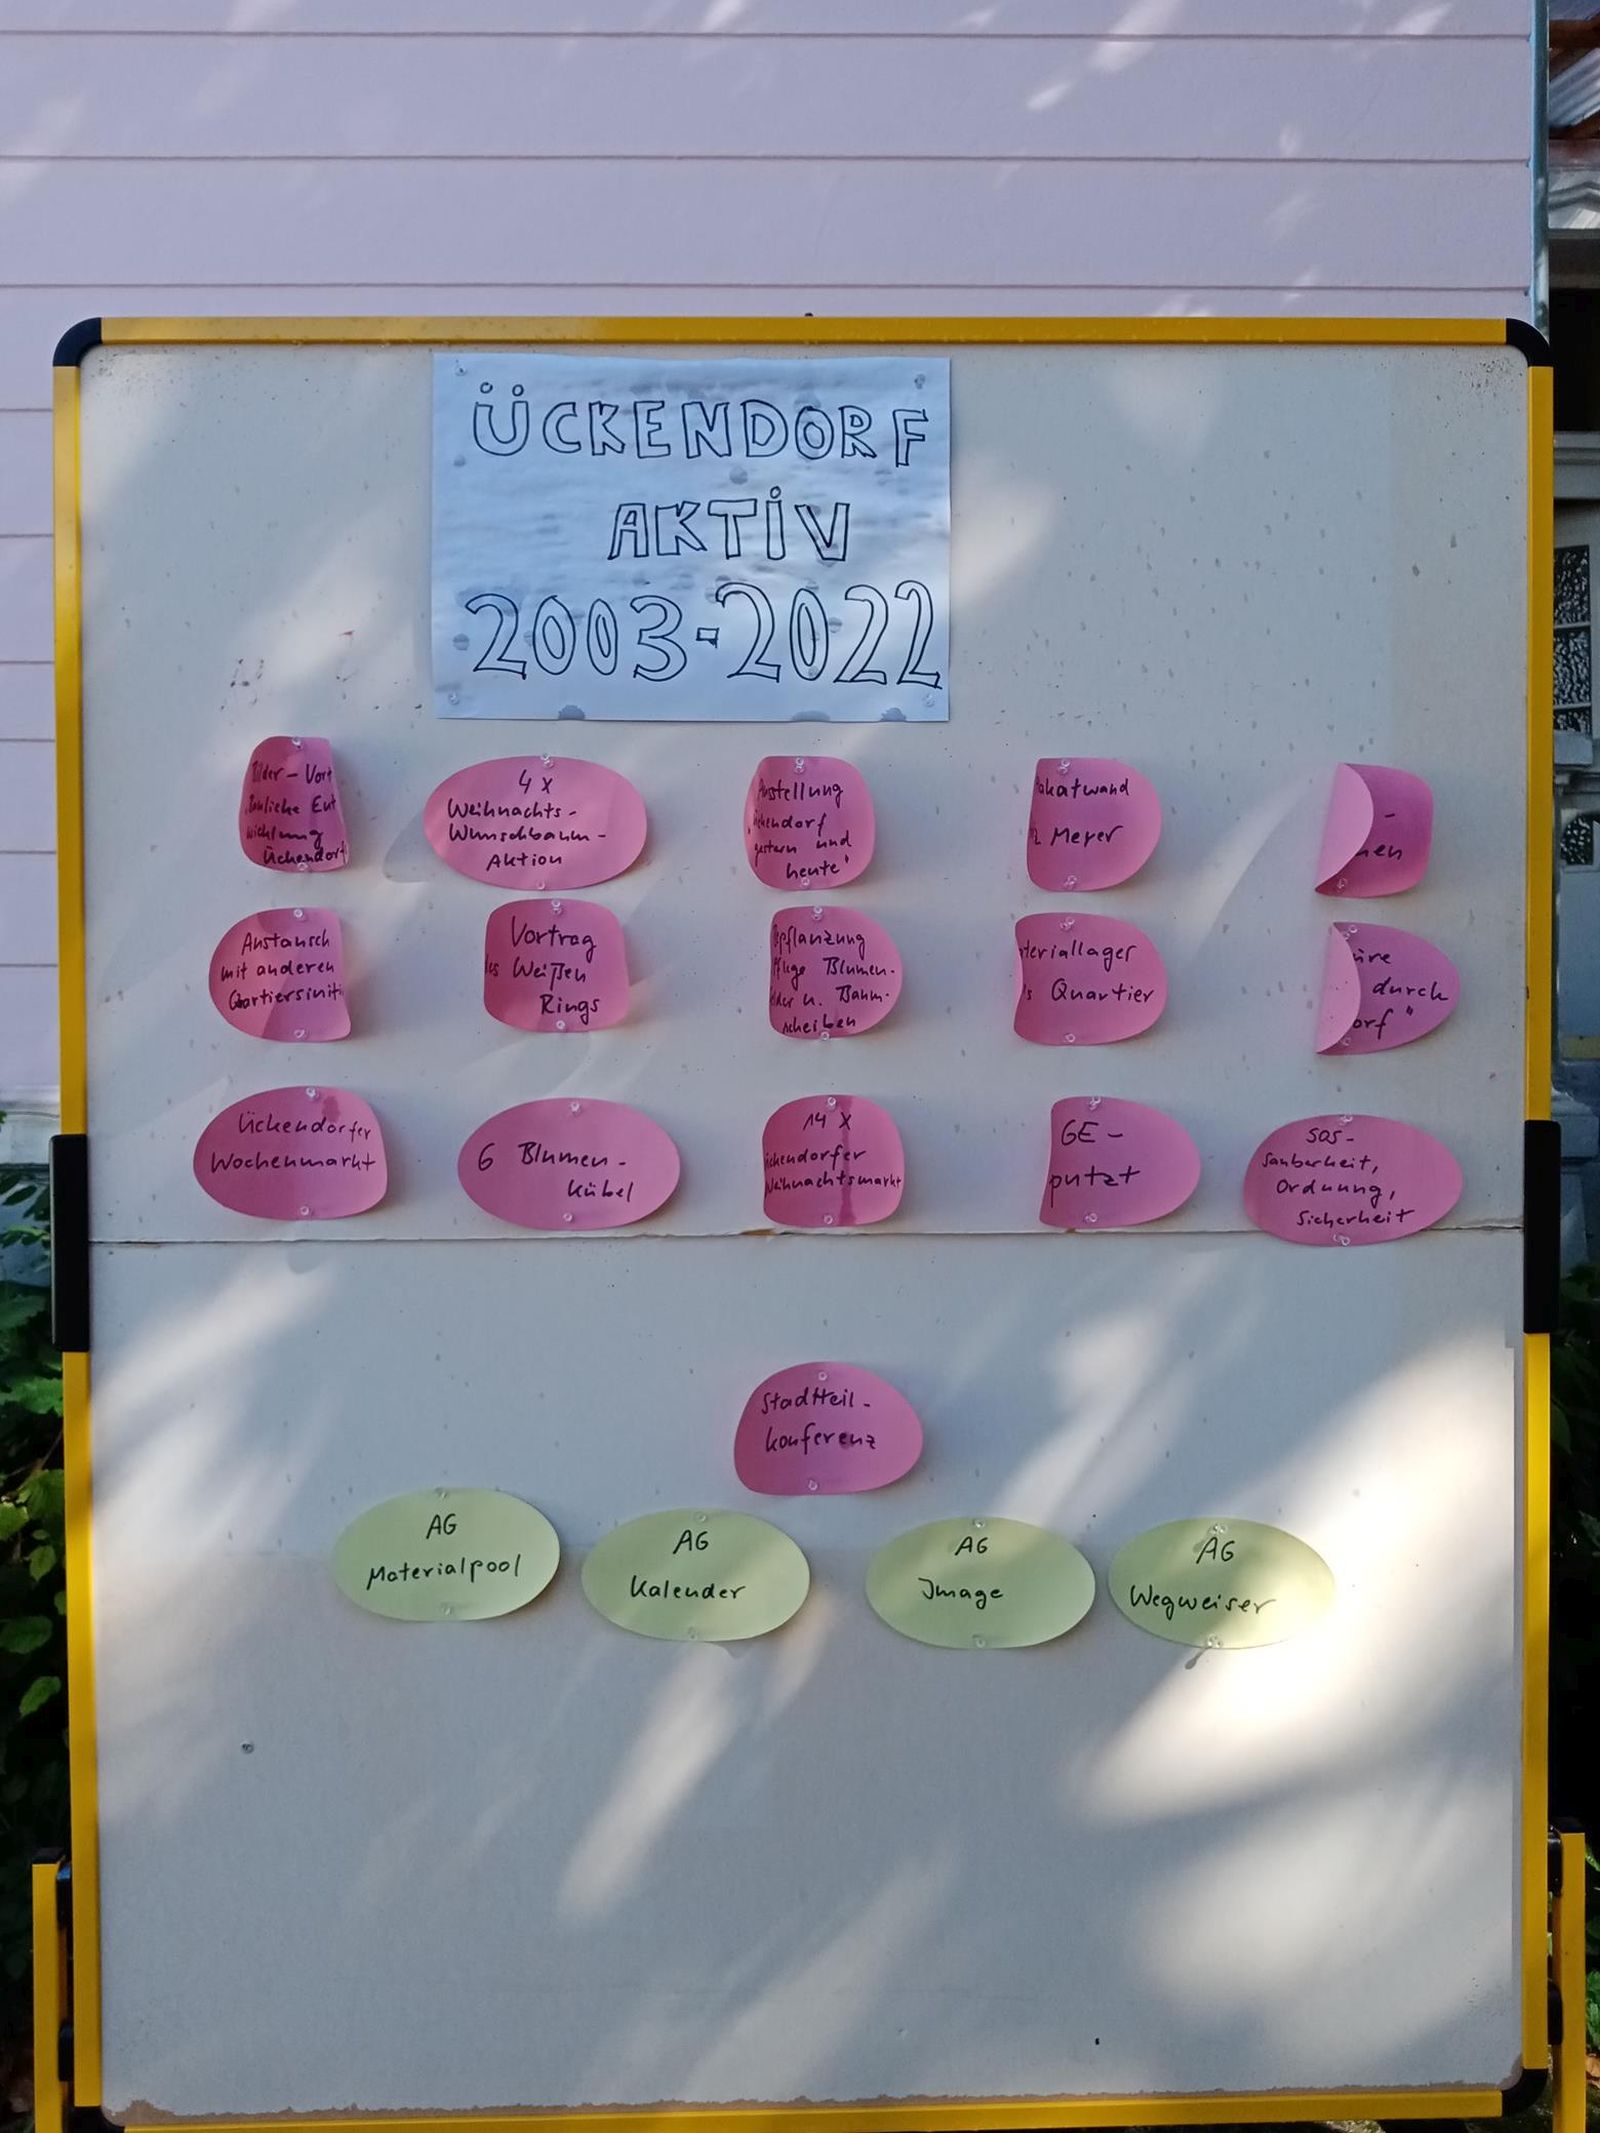 ÜCKENDORF
AKTIV
2003-2022
Vort
Ent
wicklung
Ückendorf
4 x
Weihnachts-
Wunschbaum-
Aktion
Ausstellung
gestern und
heute"
Meyer
Austausch
mit anderen
Quartiersiniti
Vortrag
Weißen
Rings
Blumen-
u. Baum-
scheiben
Quartier
durch
Ückendorfer
Wochenmarkt
6 Blumen-
Kübel
14 x
Weihnachtsmarkt
GE-
putzt
SOS-
Sauberheit,
Ordnung,
Sicherheit
Stadtteil-
konferenz
AG
Materialpool
AG
Kalender
AG
Image
AG
Wegweiser